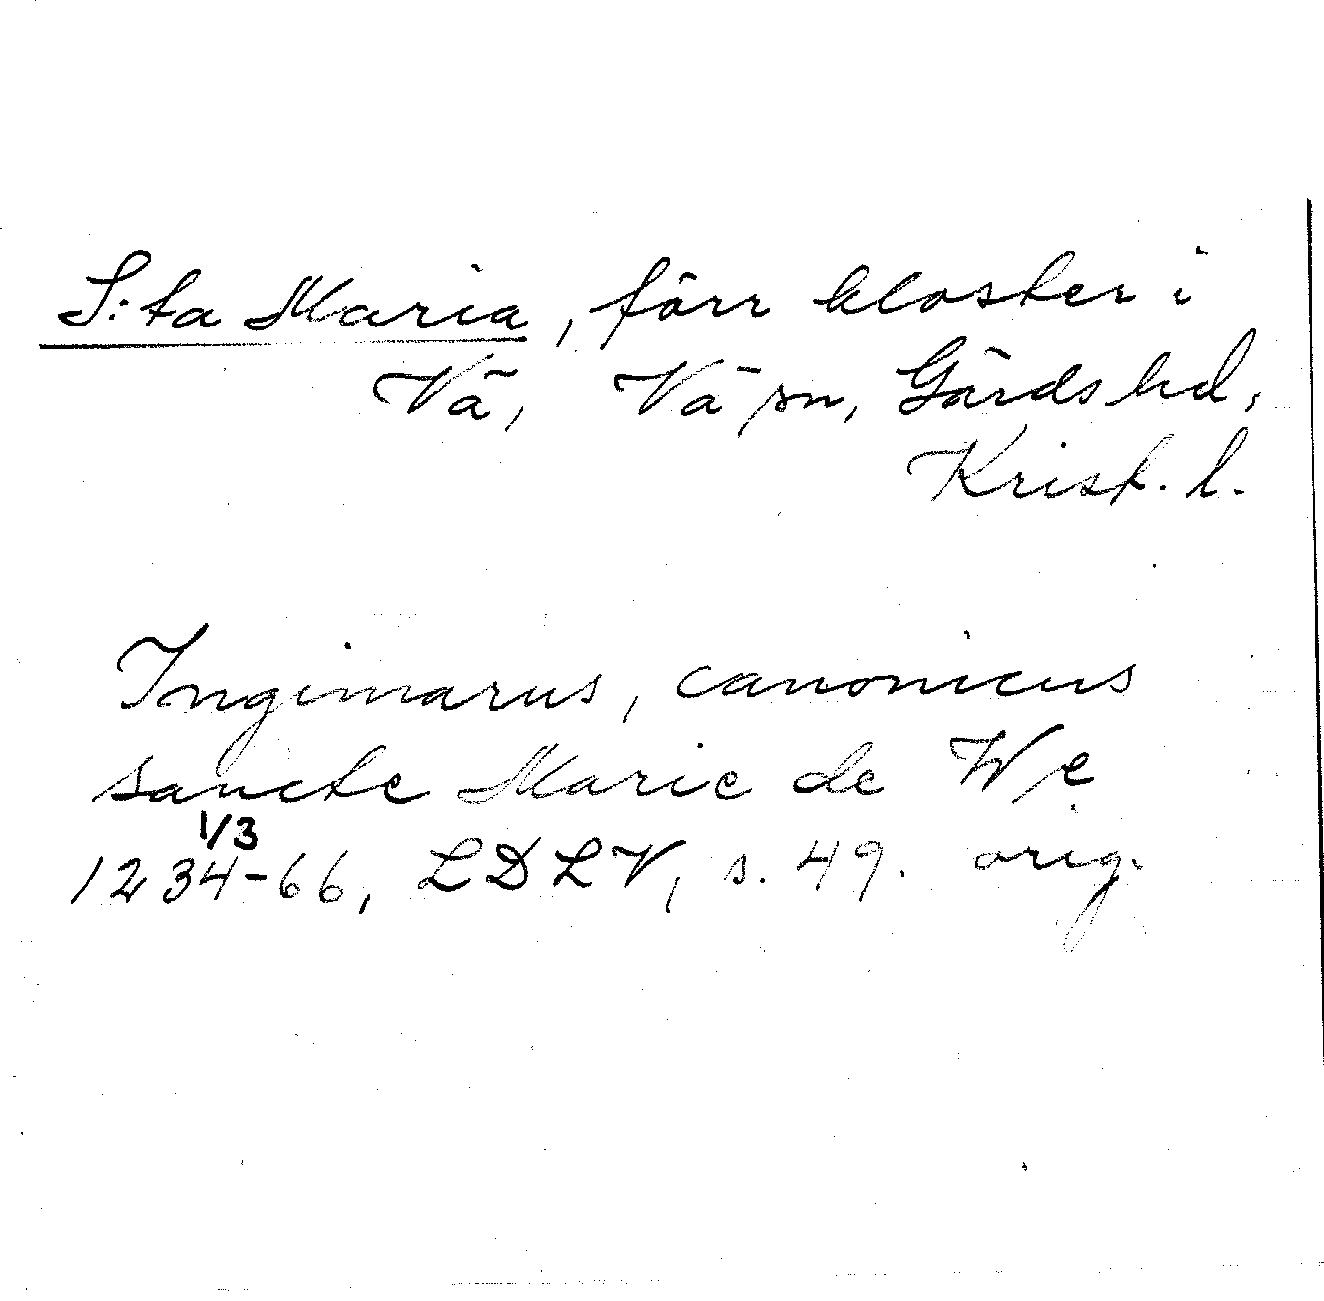 S:ta Maria, förr kloster i
Vä, Vä sn, Gärds hd,
Krist. l.
Ingimarus, canonicus
sancte Marie de We
1/3
1234-66, LDLV, s. 49. orig.